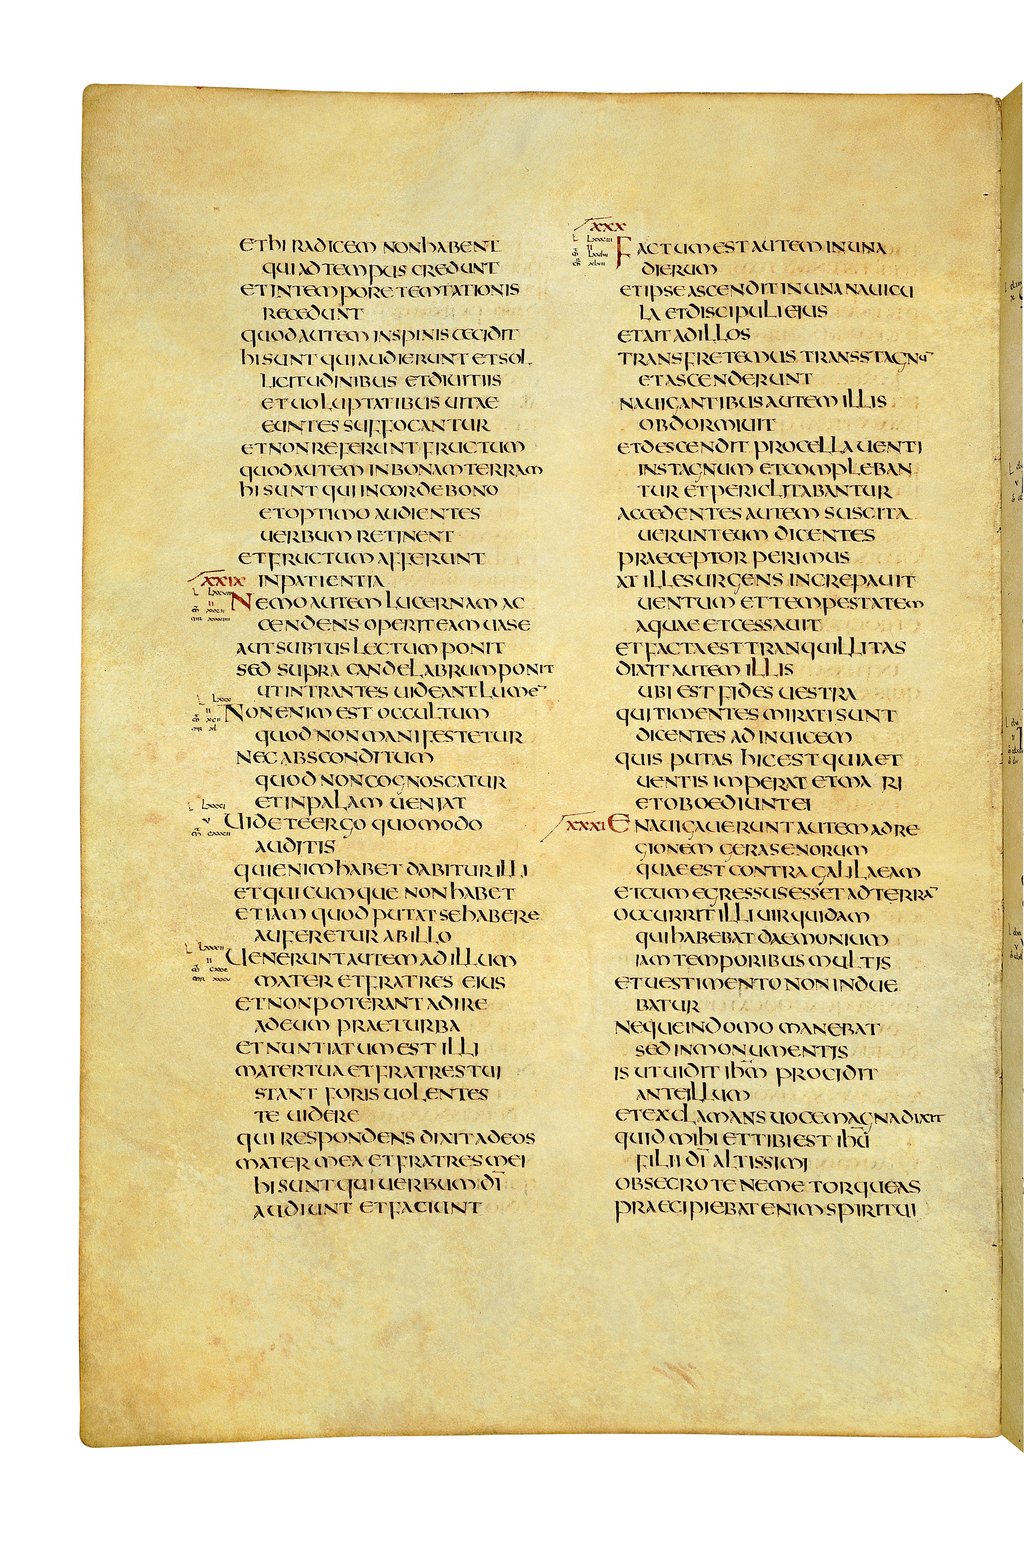 ET HI RADICEM NON HABENT
QUI AD TEMPUS CREDUNT
ET IN TEMPORE TEMTATIONIS
RECEDUNT
QUOD AUTEM IN SPINIS CECIDIT
HI SUNT QUI AUDIERUNT ET SOL
LICITUDINIBUS ET DIUITIIS
ET UOLUPTATIBUS UITAE
EUNTES SUFFOCANTUR
ET NON REFERUNT FRUCTUM
QUOD AUTEM IN BONAM TERRAM
HI SUNT QUI IN CORDE BONO
ET OPTIMO AUDIENTES
UERBUM RETINENT
ET FRUCTUM AFFERUNT
XXIX IN PATIENTIA
NEMO AUTEM LUCERNAM AC
CENDENS OPERIT EAM UASE
AUT SUBTUS LECTUM PONIT
SED SUPRA CANDELABRUM PONIT
UT INTRANTES UIDEANT LUMEN
NON ENIM EST OCCULTUM
QUOD NON MANIFESTETUR
NEC ABSCONDITUM
QUOD NON COGNOSCATUR
ET IN PALAM UENIAT
UIDETE ERGO QUOMODO
AUDITIS
QUI ENIM HABET DABITUR ILLI
ET QUICUMQUE NON HABET
ETIAM QUOD PUTAT SE HABERE
AUFERETUR AB ILLO
UENERUNT AUTEM AD ILLUM
MATER ET FRATRES EIUS
ET NON POTERANT ADIRE
AD EUM PRAE TURBA
ET NUNTIATUM EST ILLI
MATER TUA ET FRATRES TUI
STANT FORIS UOLENTES
TE UIDERE
QUI RESPONDENS DIXIT AD EOS
MATER MEA ET FRATRES MEI
HI SUNT QUI UERBUM DĪ
AUDIUNT ET FACIUNT
XXX
FACTUM EST AUTEM IN UNA
DIERUM
ET IPSE ASCENDIT IN UNA NAUICU
LA ET DISCIPULI EIUS
ET AIT AD ILLOS
TRANSFRETEMUS TRANS STAGNŪ
ET ASCENDERUNT
NAUIGANTIBUS AUTEM ILLIS
OBDORMIUIT
ET DESCENDIT PROCELLA UENTI
IN STAGNUM ET COMPLEBAN
TUR ET PERICLITABANTUR
ACCEDENTES AUTEM SUSCITA
UERUNT EUM DICENTES
PRAECEPTOR PERIMUS
AT ILLE SURGENS INCREPAUIT
UENTUM ET TEMPESTATEM
AQUAE ET CESSAUIT
ET FACTA EST TRANQUILLITAS
DIXIT AUTEM ILLIS
UBI EST FIDES UESTRA
QUI TIMENTES MIRATI SUNT
DICENTES AD INUICEM
QUIS PUTAS HIC EST QUIA ET
UENTIS IMPERAT ET MA RI
ET OBOEDIUNT EI
XXXI ENAUIGAUERUNT AUTEM AD RE
GIONEM GERASENORUM
QUAE EST CONTRA GALILAEAM
ET CUM EGRESSUS ESSET AD TERRĀ
OCCURRIT ILLI UIR QUIDAM
QUI HABEBAT DAEMONIUM
IAM TEMPORIBUS MULTIS
ET UESTIMENTO NON INDUE
BATUR
NEQUE IN DOMO MANEBAT
SED IN MONUMENTIS
IS UT UIDIT IHM̄ PROCIDIT
ANTE ILLUM
ET EXCLAMANS UOCE MAGNA DIXIT
QUID MIHI ET TIBI EST IHŪ
FILII DĪ ALTISSIMI
OBSECRO TE NE ME TORQUEAS
PRAECIPIEBAT ENIM SPIRITUI